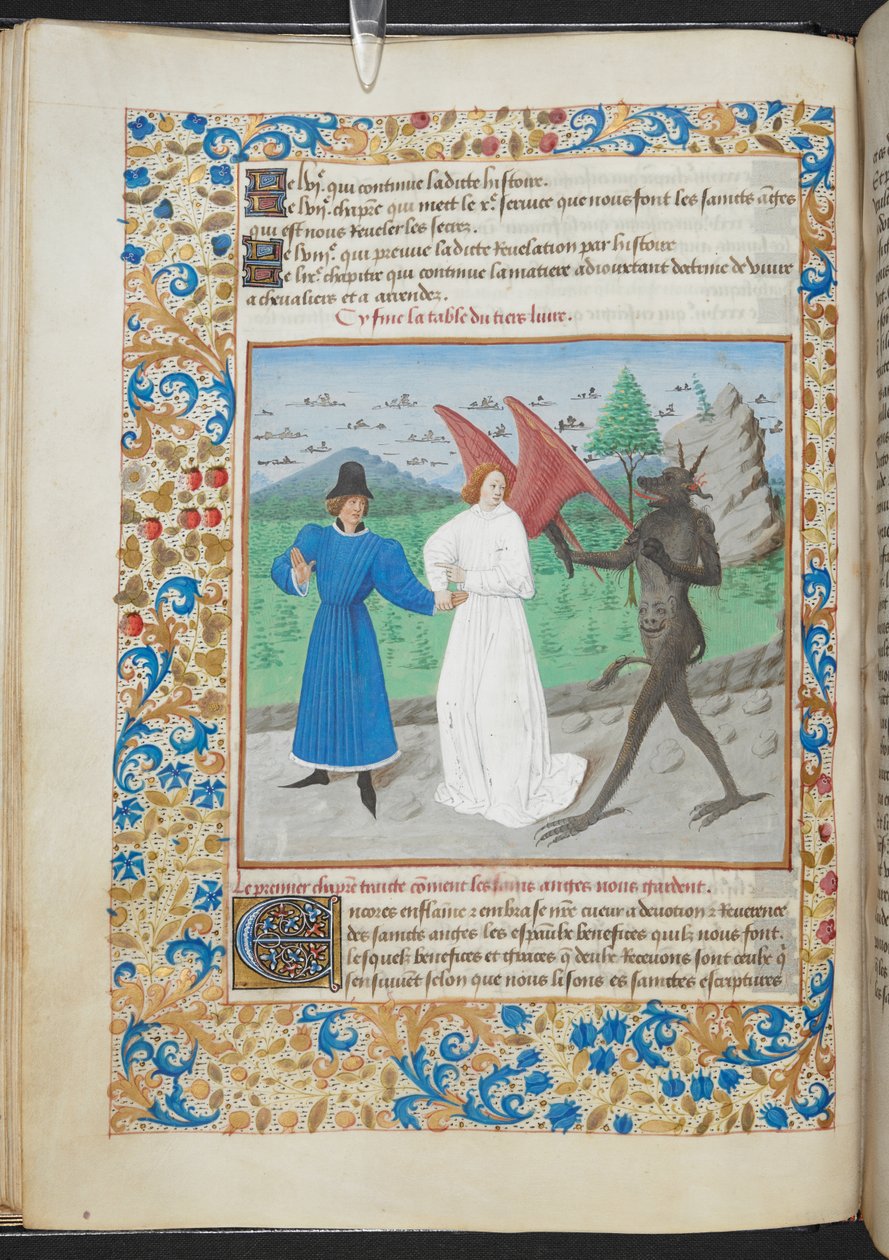 Le lviᵉ. qui continue ladicte histoire.
Le lviiᵉ. chapr̄e qui mett le xᵉ. seruice que nous font les saincts āges
qui est nous Reueler les secrez.
Le lviiiᵉ. qui preuue ladicte Reuelation par histoire
Le lixᵉ. chapitre qui continue la matiere adiouxtant doctrine de viure
a chevaliers et a
Cy fine la table du tiers liure.
Le premier chapr̄e traicte cōment les sains anges nous gardent.
Encores enflāme ⁊ embrase nr̄e cueur a deuotion ⁊ Reuerence
des saincts anges les espāulx benefices quilz nous font.
lesquelz benefices et graces q̄ deulx Receuons sont ceulx q̄
sensuiuent selon que nous lisons es sainctes escriptures